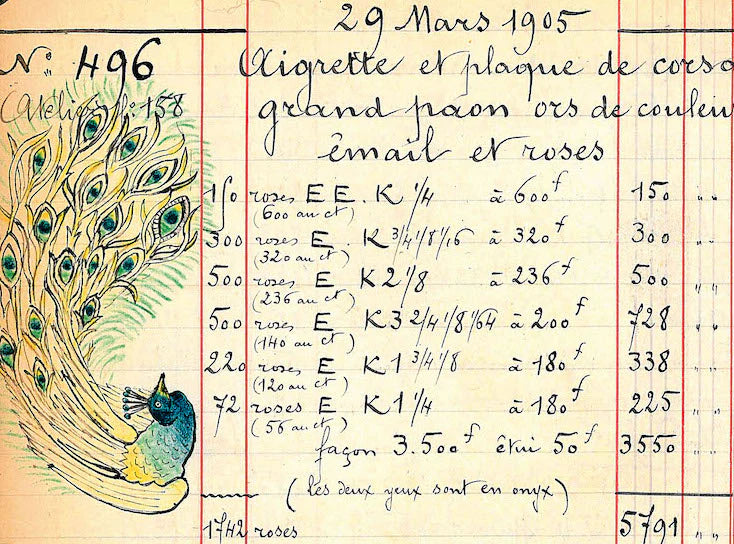 29 Mars 1905
N°: 496
Aigrette et plaque de corsa
(Atelier: 158
grand paon ors de couleu
émail et roses
150 roses EE. K 1/4 à 600f 150 " "
(600 au ct)
300 roses E. K 3/4 1/8 1/16 à 320f 300 " "
(320 au ct)
500 roses E K 2 1/8 à 236f 500 " "
(236 au ct)
500 roses E K 3 2/4 1/8 1/64 à 200f 728 " "
(140 au ct)
220 roses E K 1 3/4 1/8 à 180f 338 " "
(120 au ct)
72 roses E K 1 1/4 à 180f 225 " "
(56 au ct)
façon 3.500f êtui 50f 3550 " "
(les deux yeux sont en onyx)
1742 roses 5791 " "